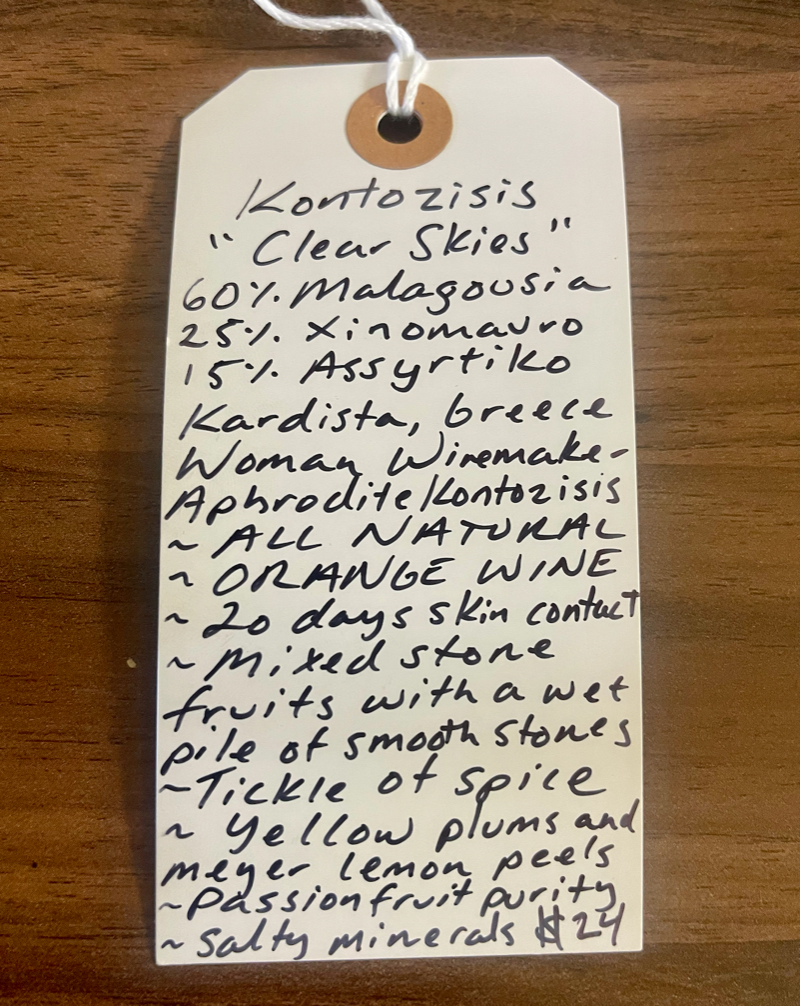 Kontozisis
"Clear Skies"
60% Malagousia
25% Xinomavro
15% Assyrtiko
Kardista, Greece
Woman Winemake-
Aphrodite Kontozisis
~ ALL NATURAL
~ ORANGE WINE
~ 20 days skin contact
~ Mixed stone
fruits with a wet
pile of smooth stones
~Tickle of spice
~ Yellow plums and
meyer lemon peels
~Passionfruit purity
~ salty minerals $24